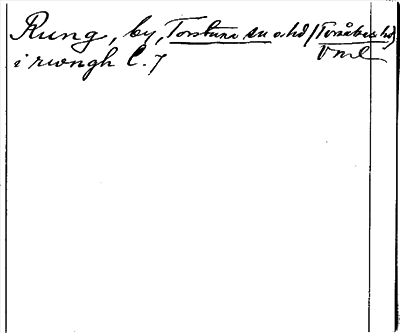 Rung, by, Torstuna sn o. hd (Torsåkers hd)
Vml
i rwngh C. 7